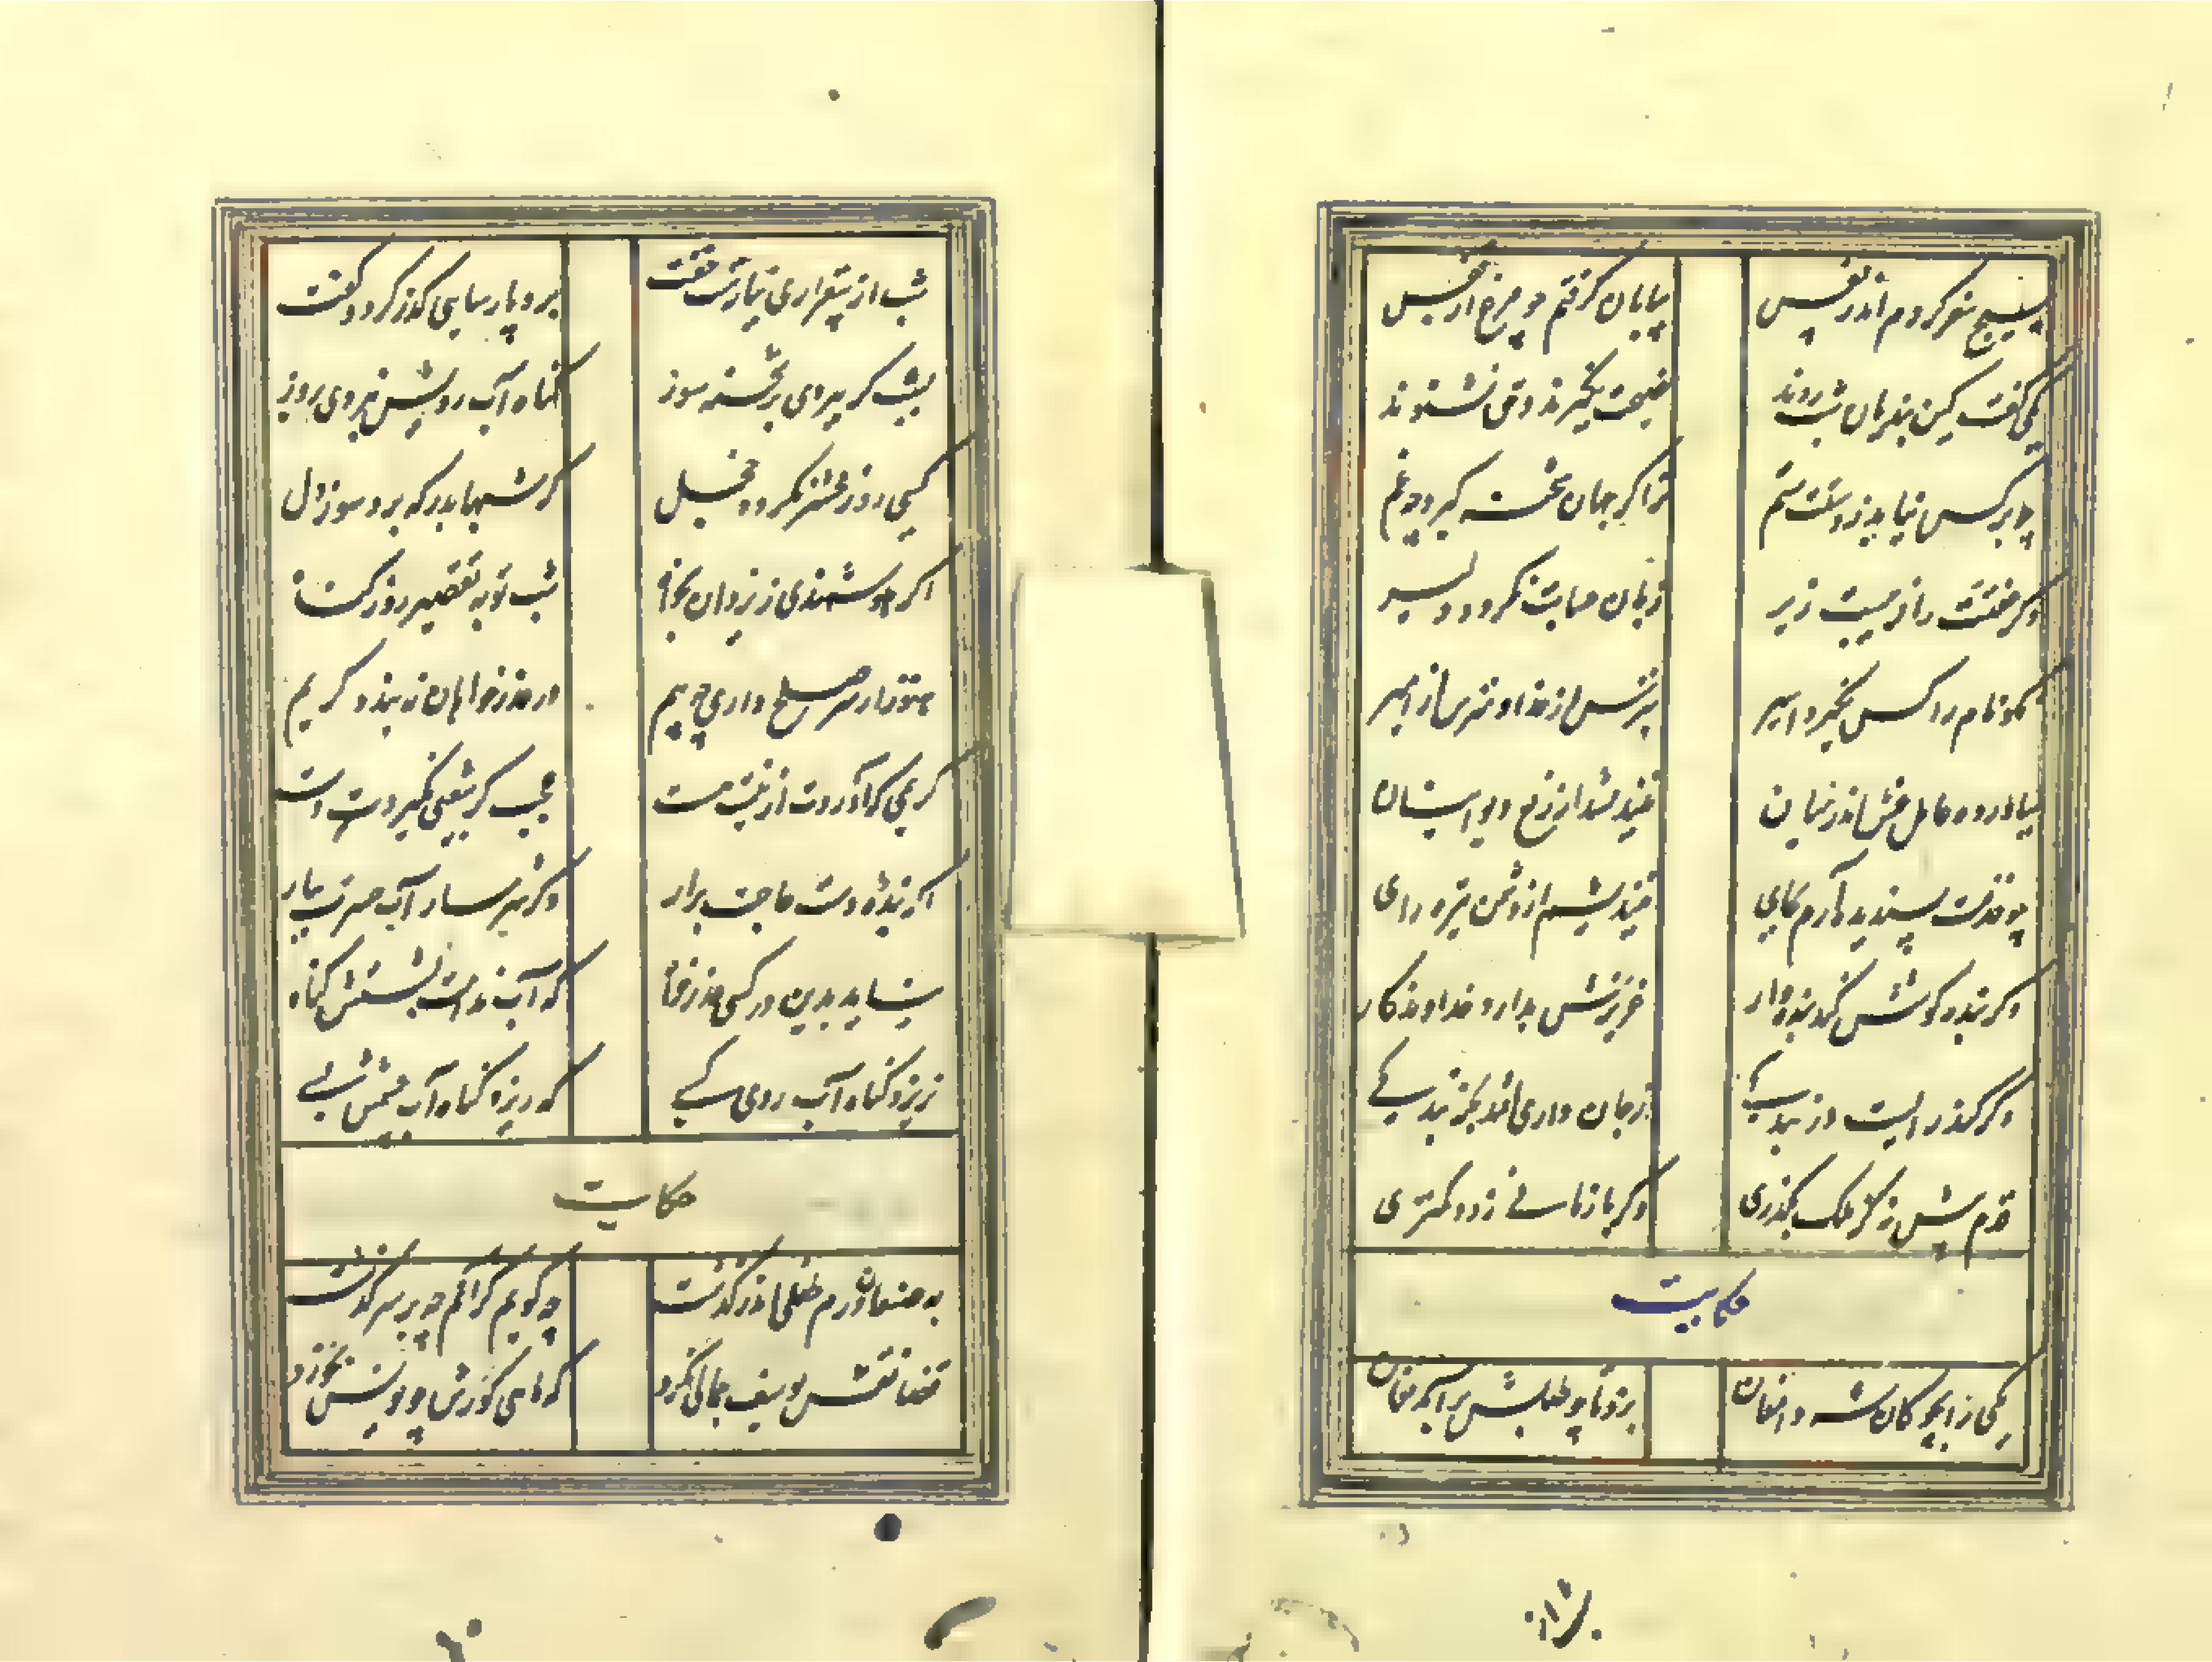 بسیج سفر کردم اندر نفس بیابان گرفتم چو مرغ از قفس
یکی گفت کین بندیان شب روند نصیحت نگیرند و حق نشنوند
چو بر کس نیاید ز دستت ستم ترا گر جهان شحنه گیرد چه غم
وگر عفتت را فریبست زیر زبان حسابت نگردد دلیر
نکونام را کس نگیرد اسیر بترس از خدا و مترس از امیر
نیاورده عامل غش اندر میان نیندیشد از رفع دیوانیان
چو خدمت پسندیده آرم بجای نیندیشم از دشمن تیره رای
اگر بنده کوشش کند بنده وار عزیزش بدارد خداوندگار
وگر کند رایست در بندگی ز جان داری افتد بخربندگی
قدم پیش نه کز ملک بگذری وگر باز مانی ز دد کمتری
حکایت
یکی را بچوگان شه دامغان بزد تا چو طبلش برآمد فغان
شب از بیقراری نیارست خفت برو پارسایی گذر کرد و گفت
بشب گر ببردی بر شحنه سوز گناه آب رویش نبردی بروز
کسی روز محشر نگردد خجل که شبها بدرگه برد سوز دل
اگر هوشمندی ز یزدان بخواه شب توبه تقصیر روز گناه
هنوز ار سر صلح داری چه بیم در عذرخواهان نبندد کریم
کریمی که آوردت از نیست هست عجب گر بیفتی نگیردت دست
اگر بنده‌ٔ دست حاجت برار وگر شرمسار آب حسرت ببار
نیاید بدین در کسی عذرخواه که آب ندامت نشستش گناه
نریزد گناه آب روی کسی که ریزد گناه آب چشمش بسی
حکایت
به صنعا درم طفلی اندر گذشت چه گویم کز آنم چه بر سر گذشت
قضا نقش یوسف جمالی نکرد که ماهی گورش چو یونس نخورد
شب از